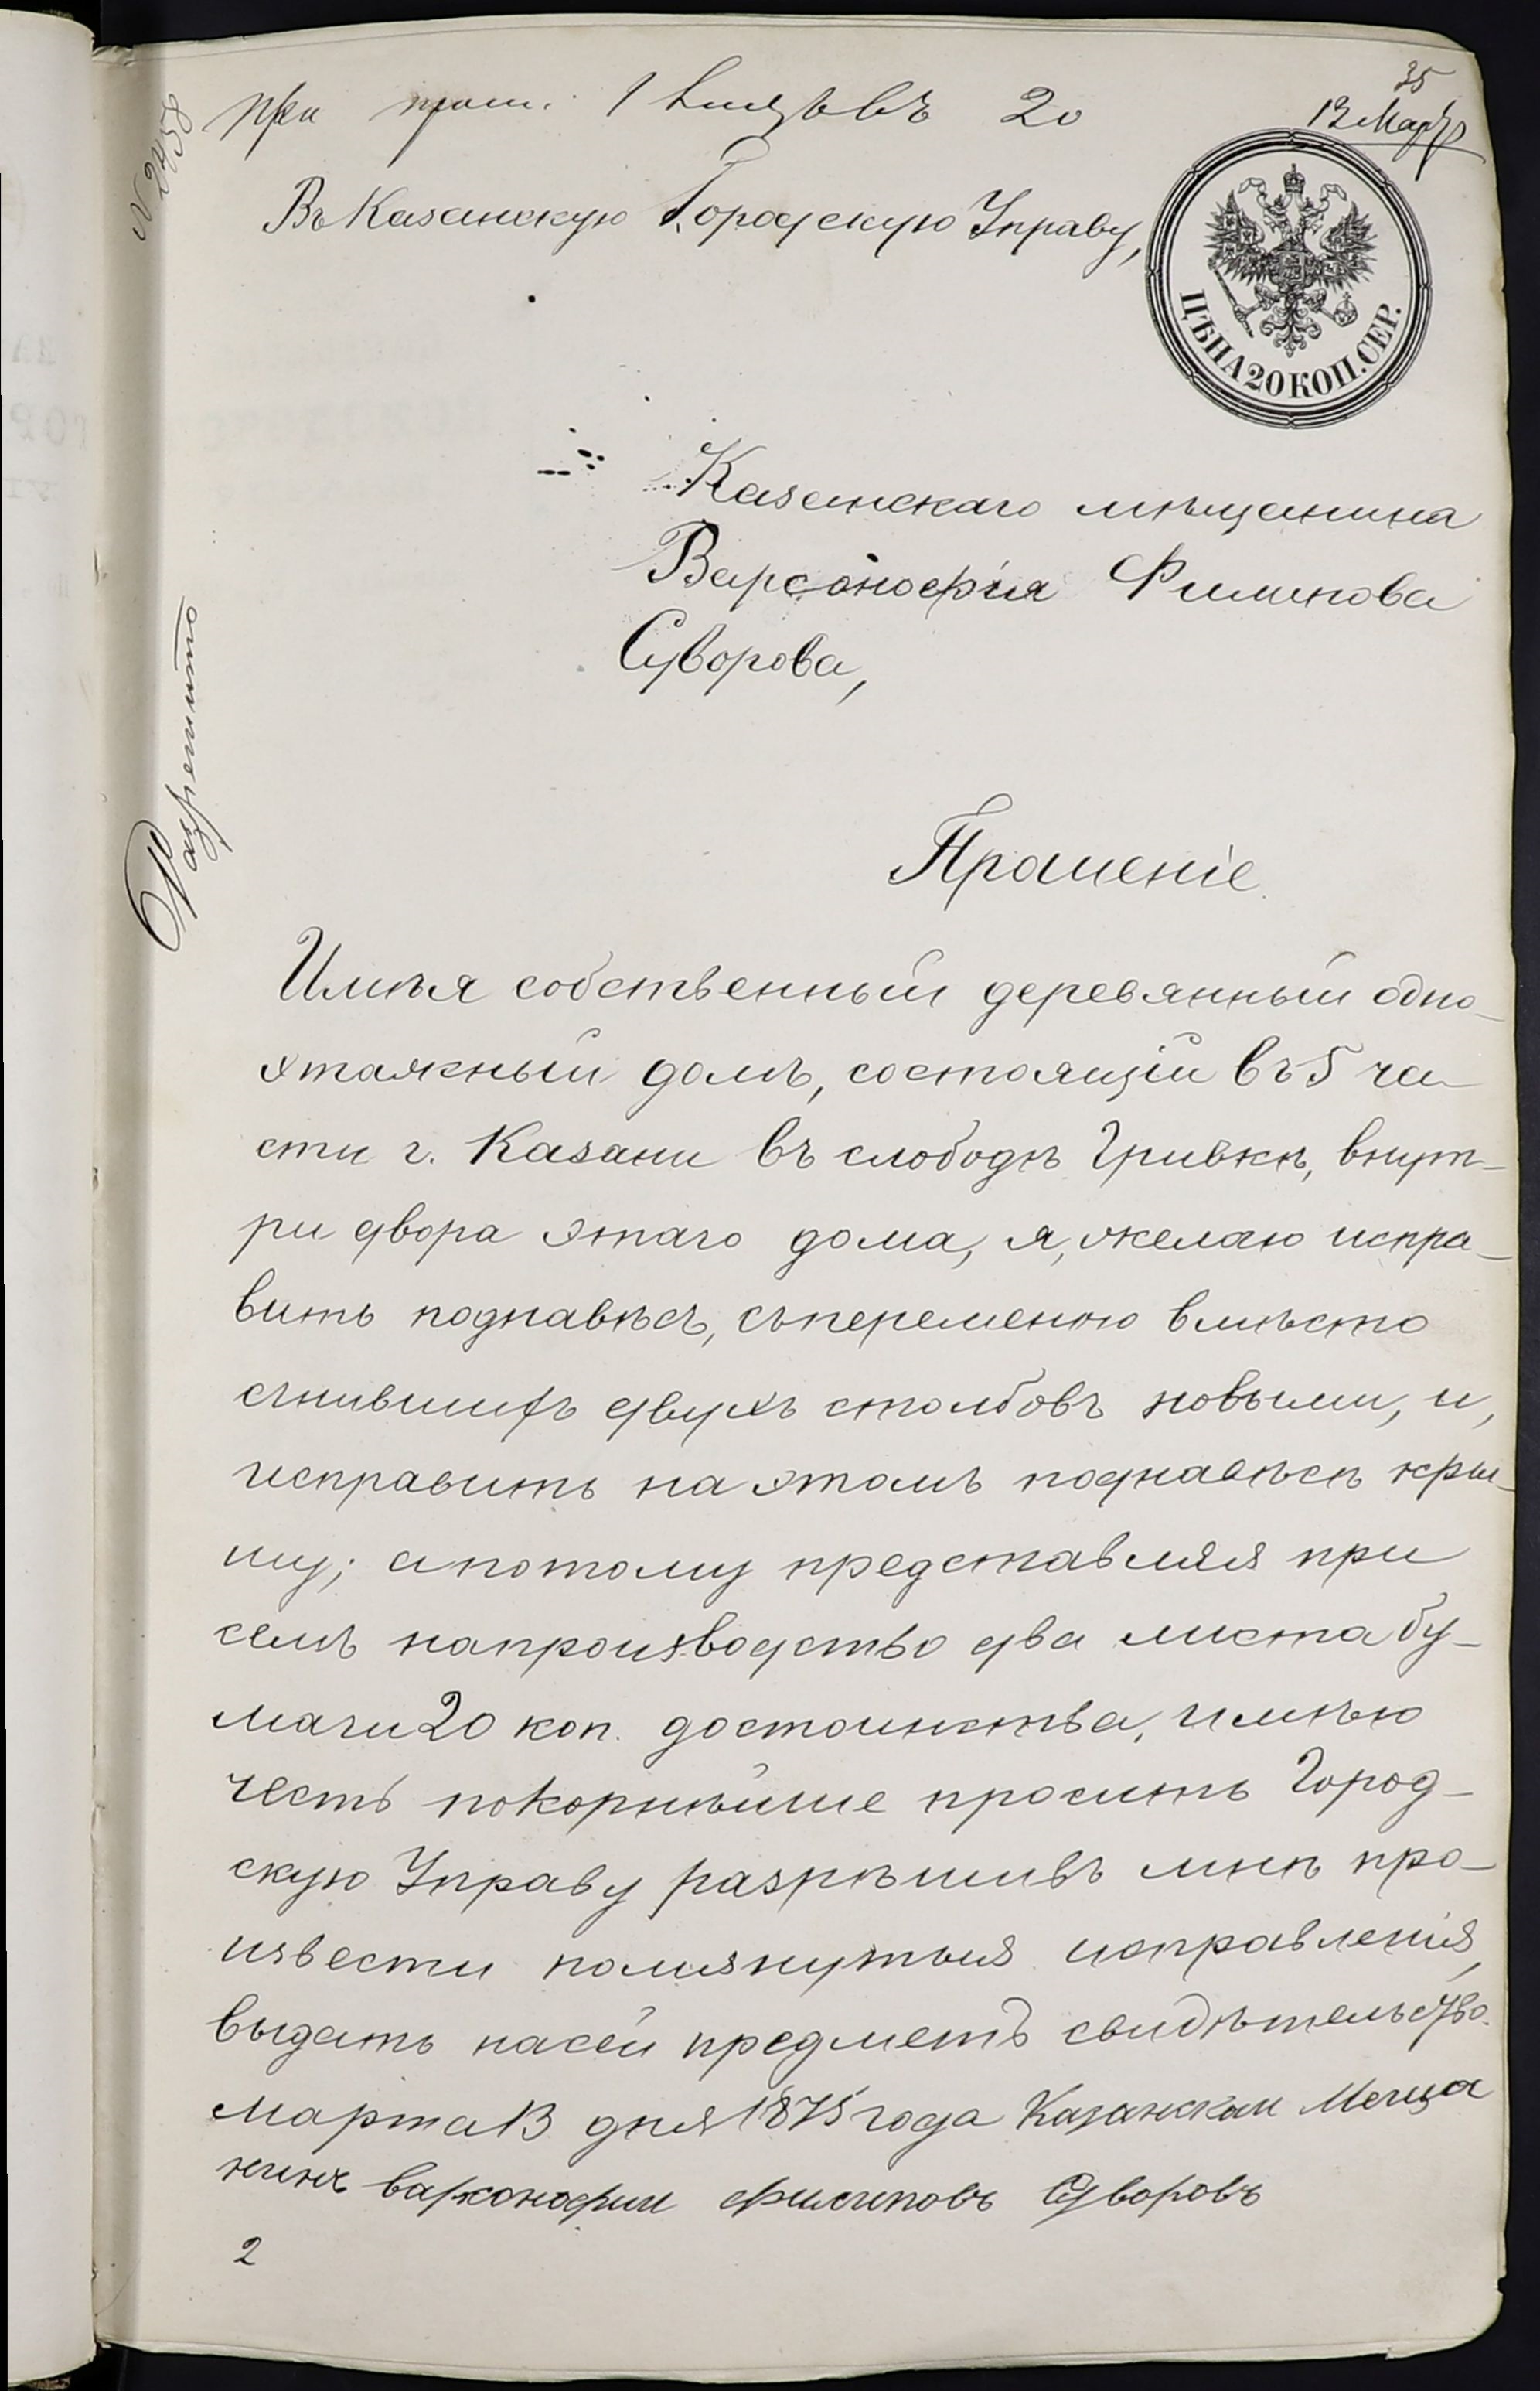 35
13 Марта
при прош. 1 20
№ 2458
Въ Казанскую Городскую Управу,
ЦѢНА 20 КОП. СЕР.
Казанскаго мѣщанина
Варсонофія Филипова
Суворова,
Разрешить
Прошеніе
Имѣя собственный деревянный одно-
этажный домъ, состоящій въ 5 ча-
сти г. Казани въ слободѣ Гривкѣ, внут-
ри двора этаго дома, я, желаю испра-
вить поднавѣсъ, съ переменою вмѣсто
сгнившихъ двухъ столбовъ новыми, и,
исправить на этомъ поднавѣсѣ кры-
шу; а потому представляя при
семъ на производство два листа бу-
маги 20 коп. достоинства, имѣю
честь покорнѣйше просить Город-
скую Управу разрѣшивъ мнѣ про-
извести помянутыя исправленія,
выдать на сей предметъ свидѣтельство.
Марта 13 дня 1875 года Казанскаи Меща
нинъ варсонофии филиповъ Суворовъ
2